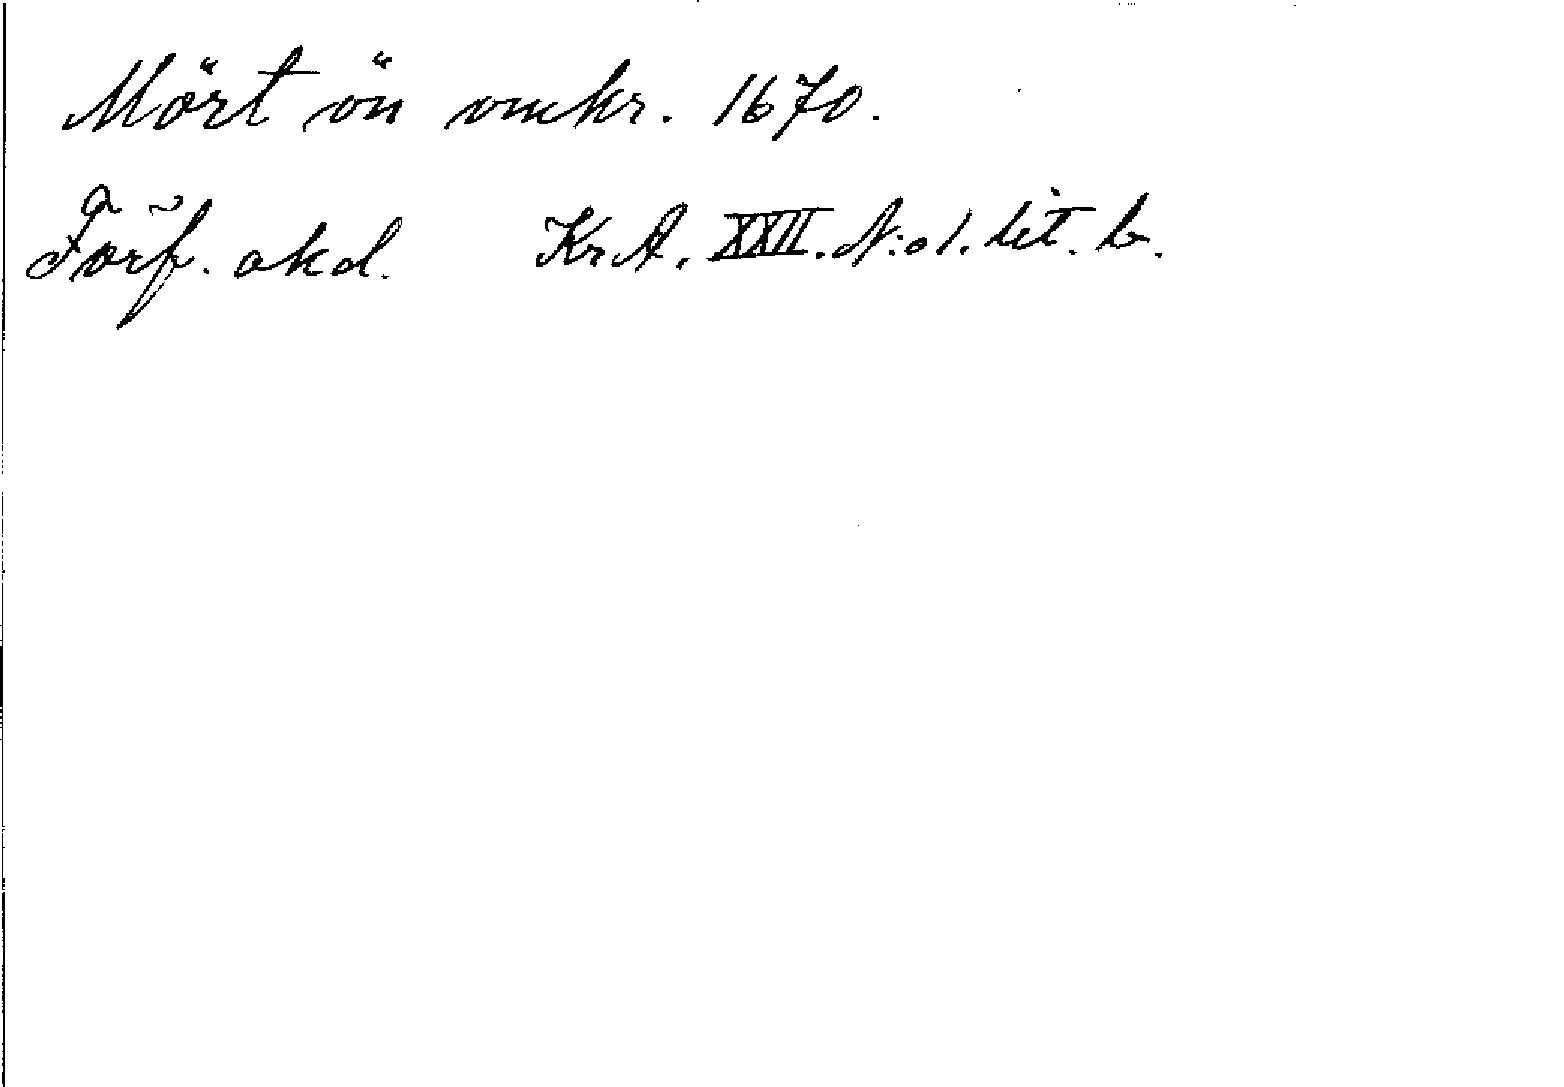 Mört ön omkr. 1670.
Förf. okd. Kr A. XXII. N:o 1. lit. b.